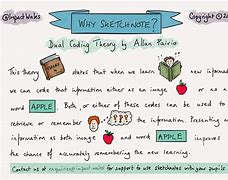 @ImpactWales
WHY SKETCHNOTE?
Copyright ©
Dual Coding Theory by Allan Paivio
This theory states that when we learn new informa
we can code that information either as an image or as
word APPLE. Both, or either of these codes can be used to
recollect or remember the information. Presenting
information as both image and word APPLE improves
the chance of accurately remembering the new learning.
Contact us at enquiries@impact.wales for support to use sketchnotes with your pupils